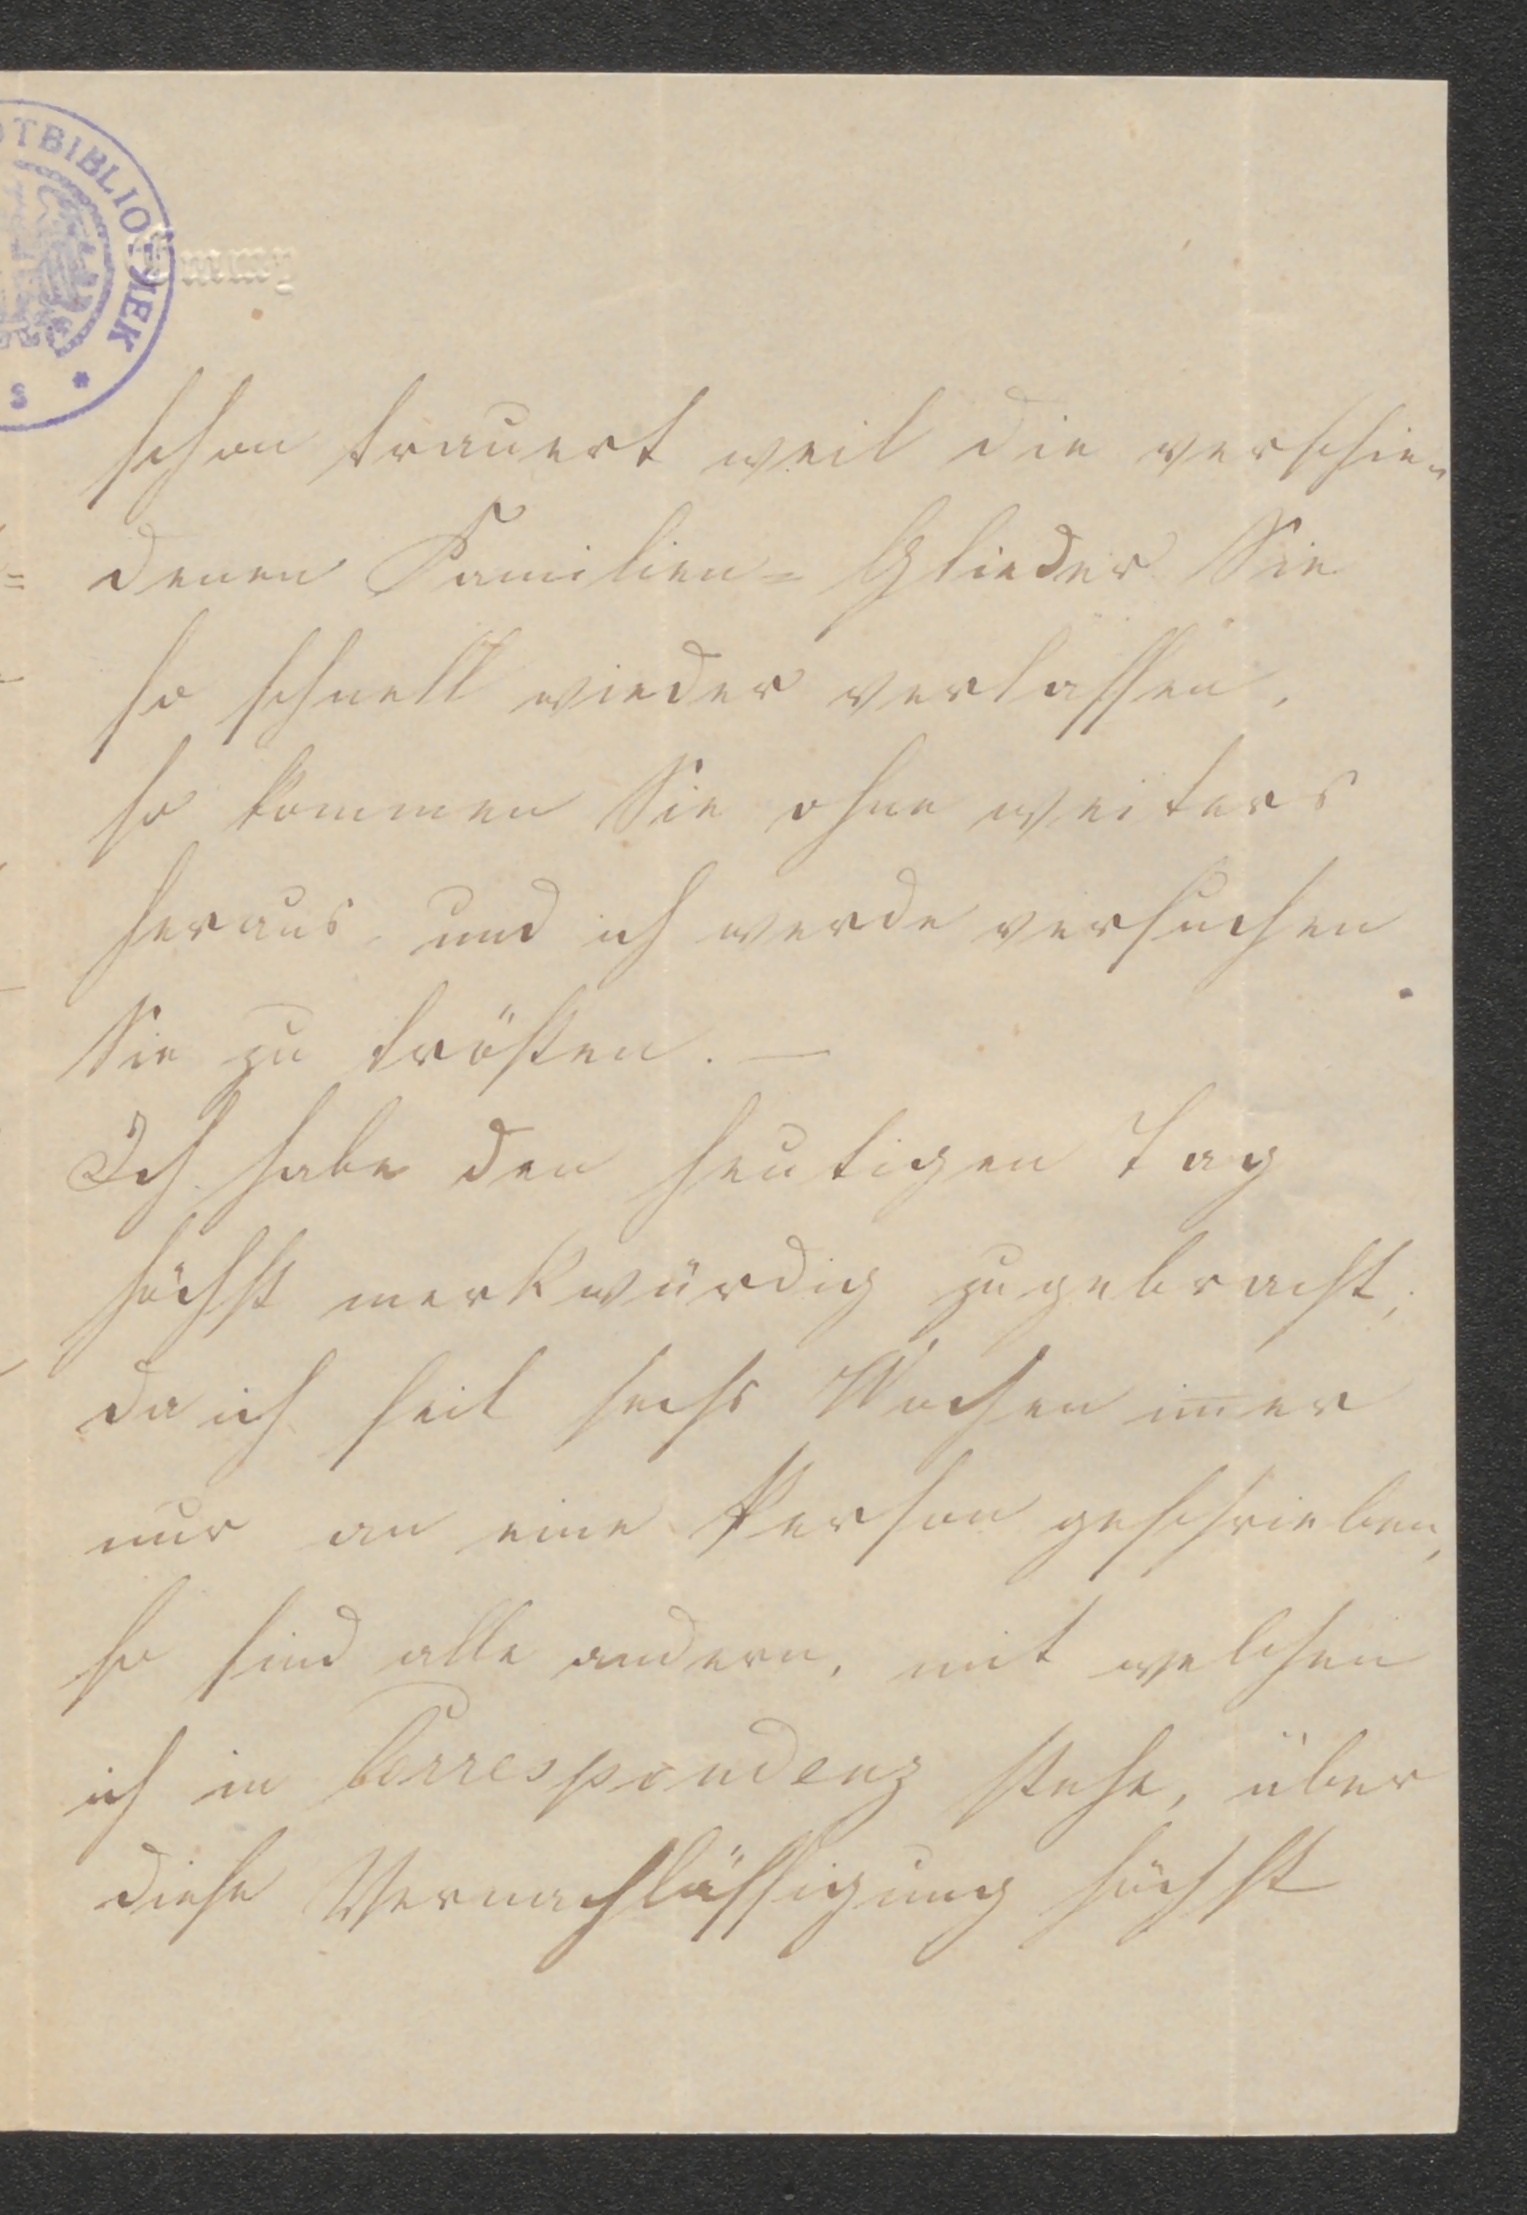 TBIBLIOTHEK
S *
schon trauert weil die verschie-
denen Familien= Glieder Sie
so schnell wieder verlassen,
so kommen Sie ohne weiters
heraus, und ich werde versuchen
Sie zu trösten. —
Ich habe den heutigen Tag
höchst merkwürdig zugebracht,
da ich seit sechs Wochen im̅er
nur an eine Person geschrieben,
so sind alle andern, mit welchen
ich in Correspondenz stehe, über
diese Vernachlässigung höchst